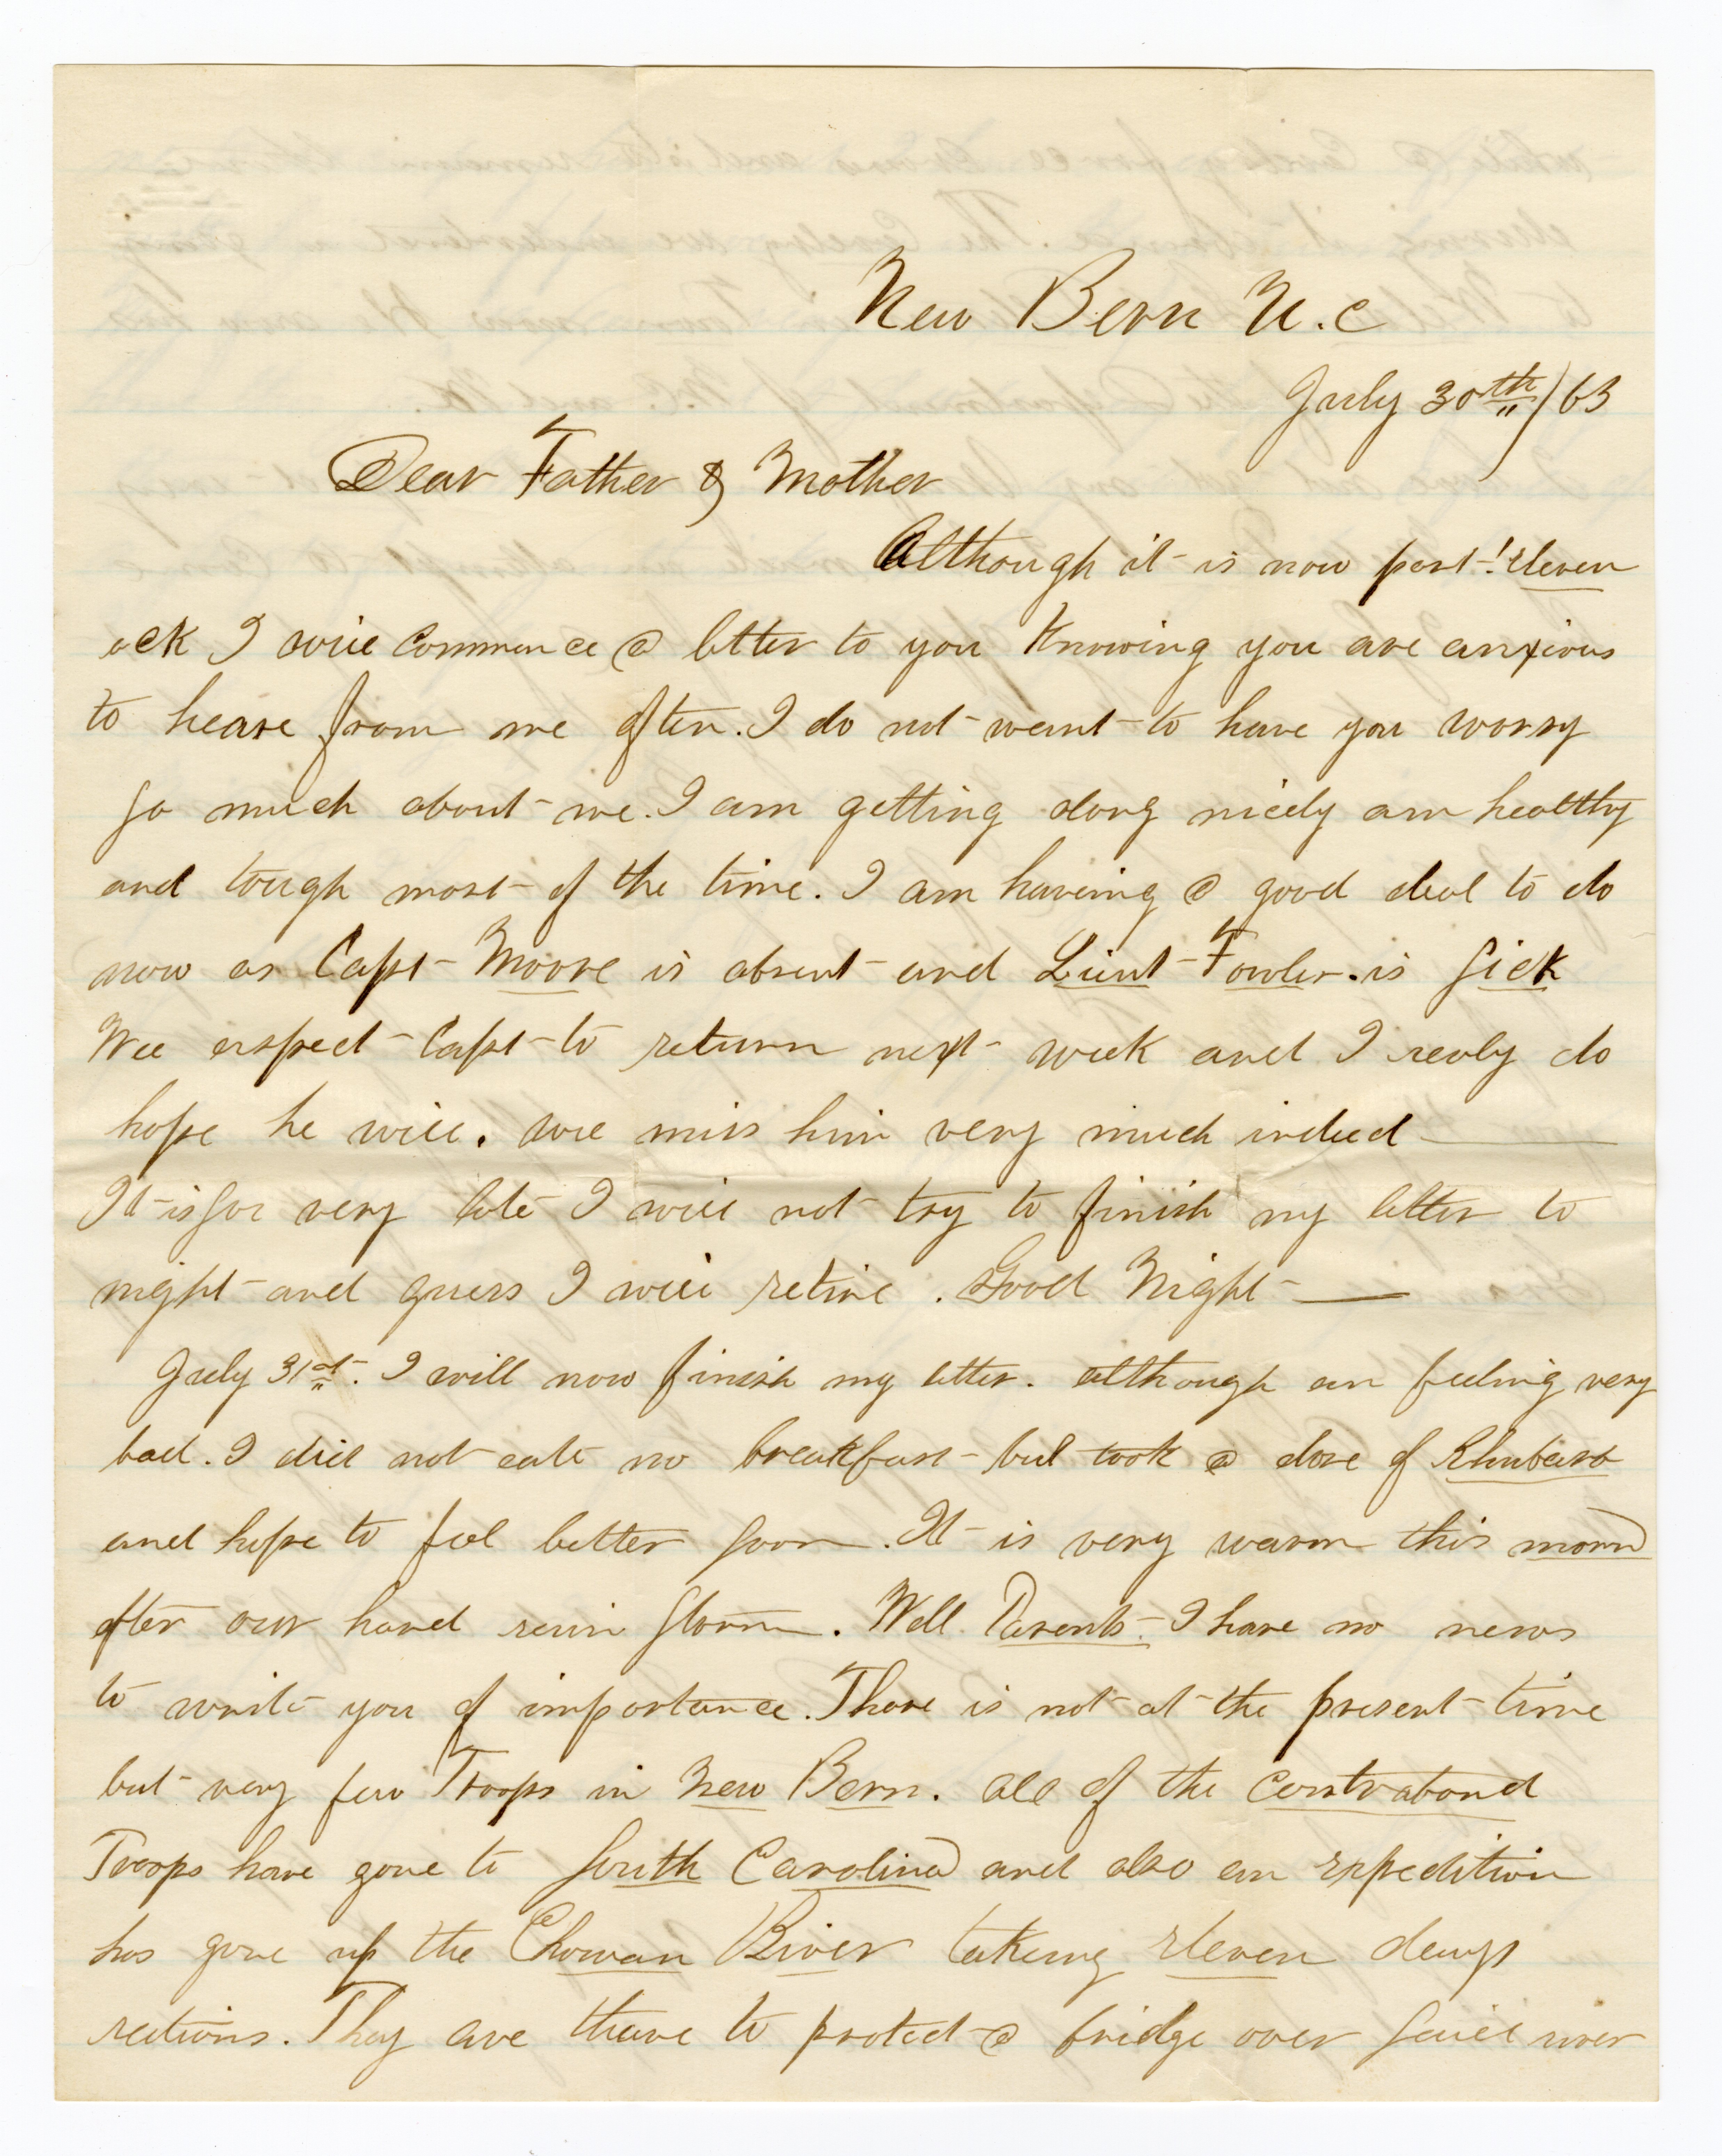 New Bern N.C
July 30th/63
Dear Father & Mother
Although it is now past ! Eleven
ock I will commence a letter to you Knowing you are anxious
to heare from me often. I do not want to have you worry
so much about me. I am getting along nicely am healthy
and tough most of the time. I am having a good deal to do
now as Capt Moore is absent and Lieut Fowler. is sick
Wee expect Capt to return next week and I realy do
hope he will. wee miss him very much indeed
It is so very late I will not try to finish my letter to
night and guess I will retire. Good Night
July 31st. I will now finish my letter. although am feeling very
bad. I did not eate no breakfast but took a dose of Rhubarb
and hope to feel better soon. It is very warm this morn
after our hard rain storm. Well Parents I have no news
to write you of importance. There is not at the present time
but very few Troops in New Bern. all of the contraband
Troops have gone to South Carolina and also an expedition
has gone up the Chowan River takeing eleven days
rations. They are theare to protect a bridge over said river